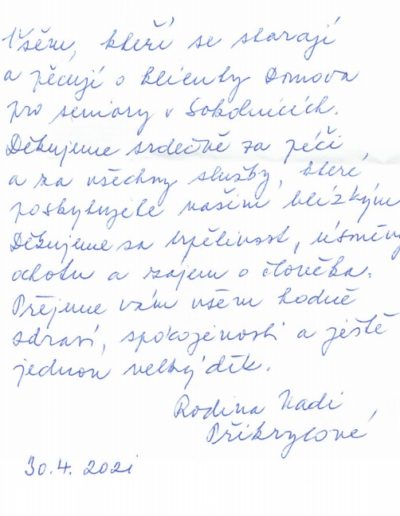 Všem, kteří se starají
a pečují o klienty Domova
pro seniory v Sokolnicích.
Děkujeme srdečně za péči
a za všechny služby, které
poskytujete našim blízkým.
Děkujeme za trpělivost, úsměvy
ochotu a zájem o člověka.
Přejeme vám všem hodně
zdraví, spokojenosti a ještě
jednou velký dík.
Rodina Nadi
Přikrylové
30.4. 2021